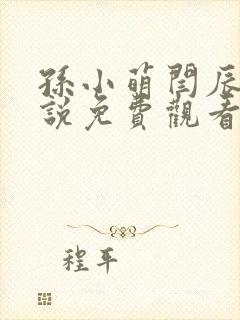 孫小萌閆辰
說免費觀看
程平